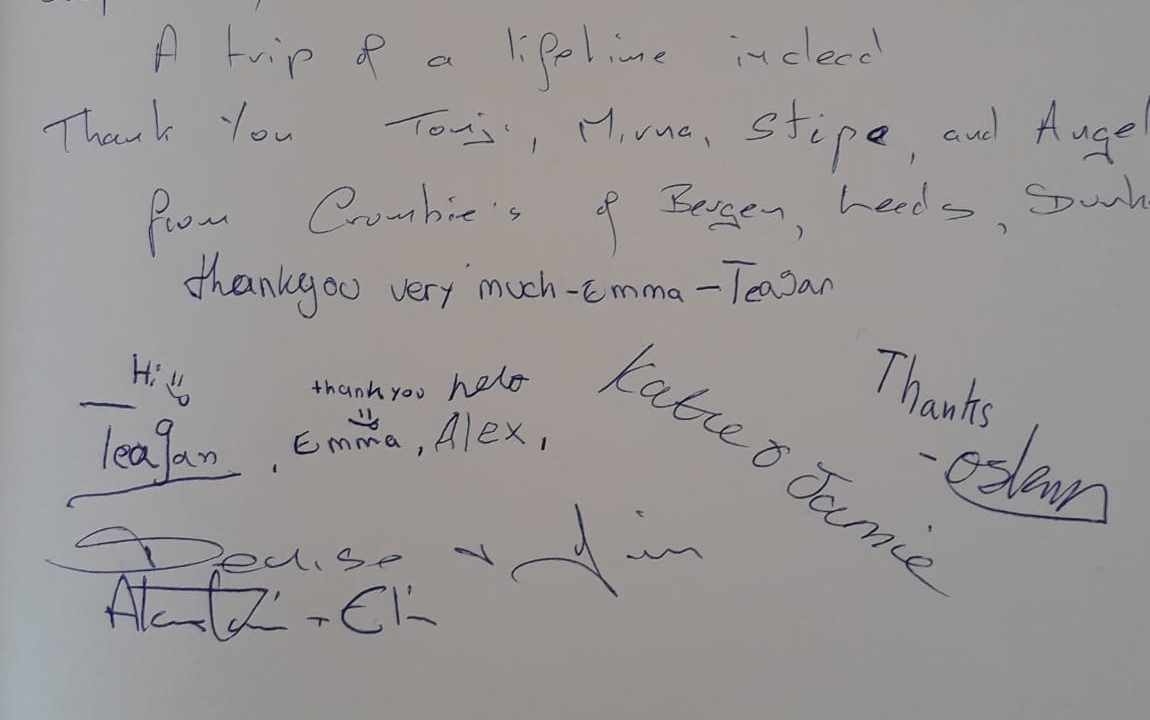 A trip of a lifetime indeed
Thank You Tonis, Mirna, Stipe, and Angel
from Crombie's of Bergen, Leeds, Dunk
thankyou very much - Emma - Teagan
Hi
thank you helo
Teagan, Emma, Alex,
Katie & Jamie
Thanks
-
Denise + Jim
+ Eli